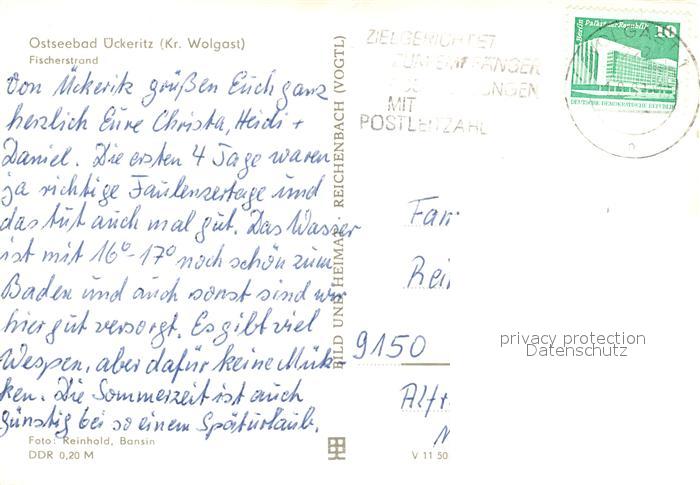 Ostseebad Ückeritz (Kr. Wolgast)
Fischerstrand
Von Ückeritz grüßen Euch ganz
herzlich Eure Christa, Heidi +
Daniel. Die ersten 4 Tage waren
ja richtige Faulenzertage und
das tut auch mal gut. Das Wasser
ist mit 16°-17° noch schön zum
Baden und auch sonst sind wir
hier gut versorgt. Es gibt viel
Wespen, aber dafür keine Mük-
ken. Die Sommerzeit ist auch
günstig bei so einem Späturlaub.
Foto: Reinhold, Bansin
DDR 0,20 M
BILD UND HEIMAT REICHENBACH (VOGTL)
V 11 50
ZIELGERICHTET
ZUM EMPFÄNGER
MIT
POSTLEITZAHL
Berlin Palast der Republik 10
DEUTSCHE DEMOKRATISCHE REPUBLIK
Fam
Rei
9150
Altr
privacy protection
Datenschutz